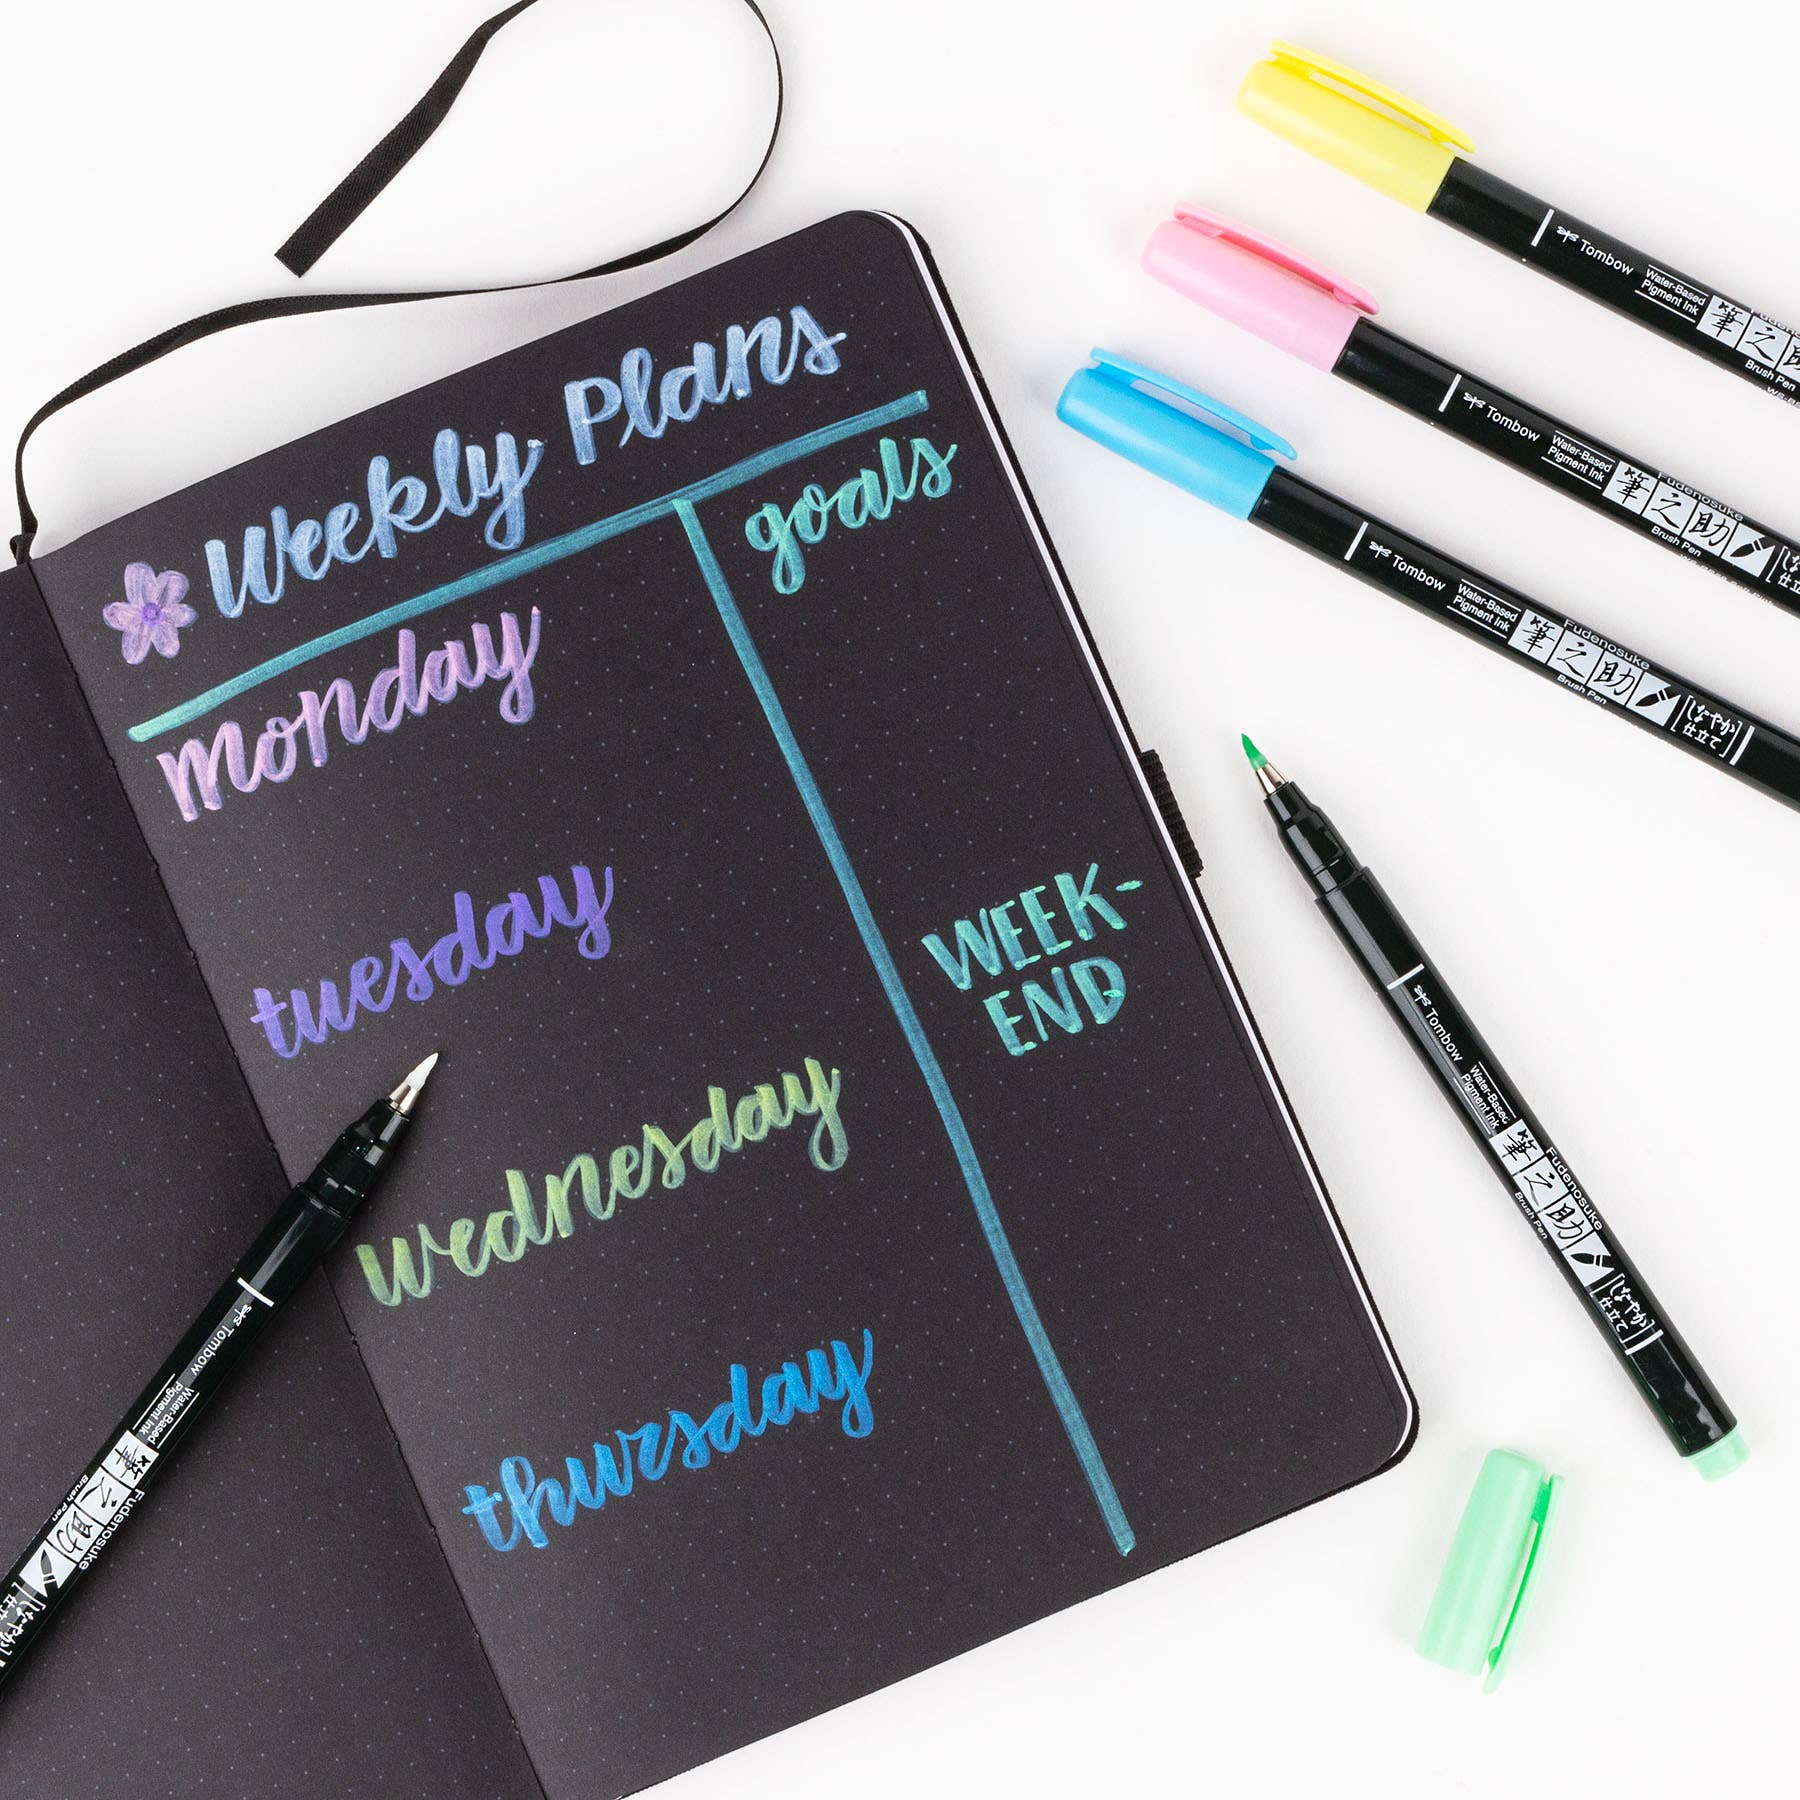 Weekly Plans
goals
monday
tuesday
WEEK-
END
wednesday
thursday
Tombow
Water-Based
Pigment Ink
筆之
Brush Pen
Tombow
Water-Based
Pigment Ink
Fudenosuke
筆之助
Brush Pen
Tombow
Water-Based
Pigment Ink
Fudenosuke
筆之助
Brush Pen
しなやか
仕立て
Tombow
Water-Based
Pigment Ink
Fudenosuke
筆之助
Brush Pen
しなやか
仕立て
Tombow
Water-Based
Pigment Ink
Fudenosuke
筆之助
Brush Pen
しなやか
仕立て